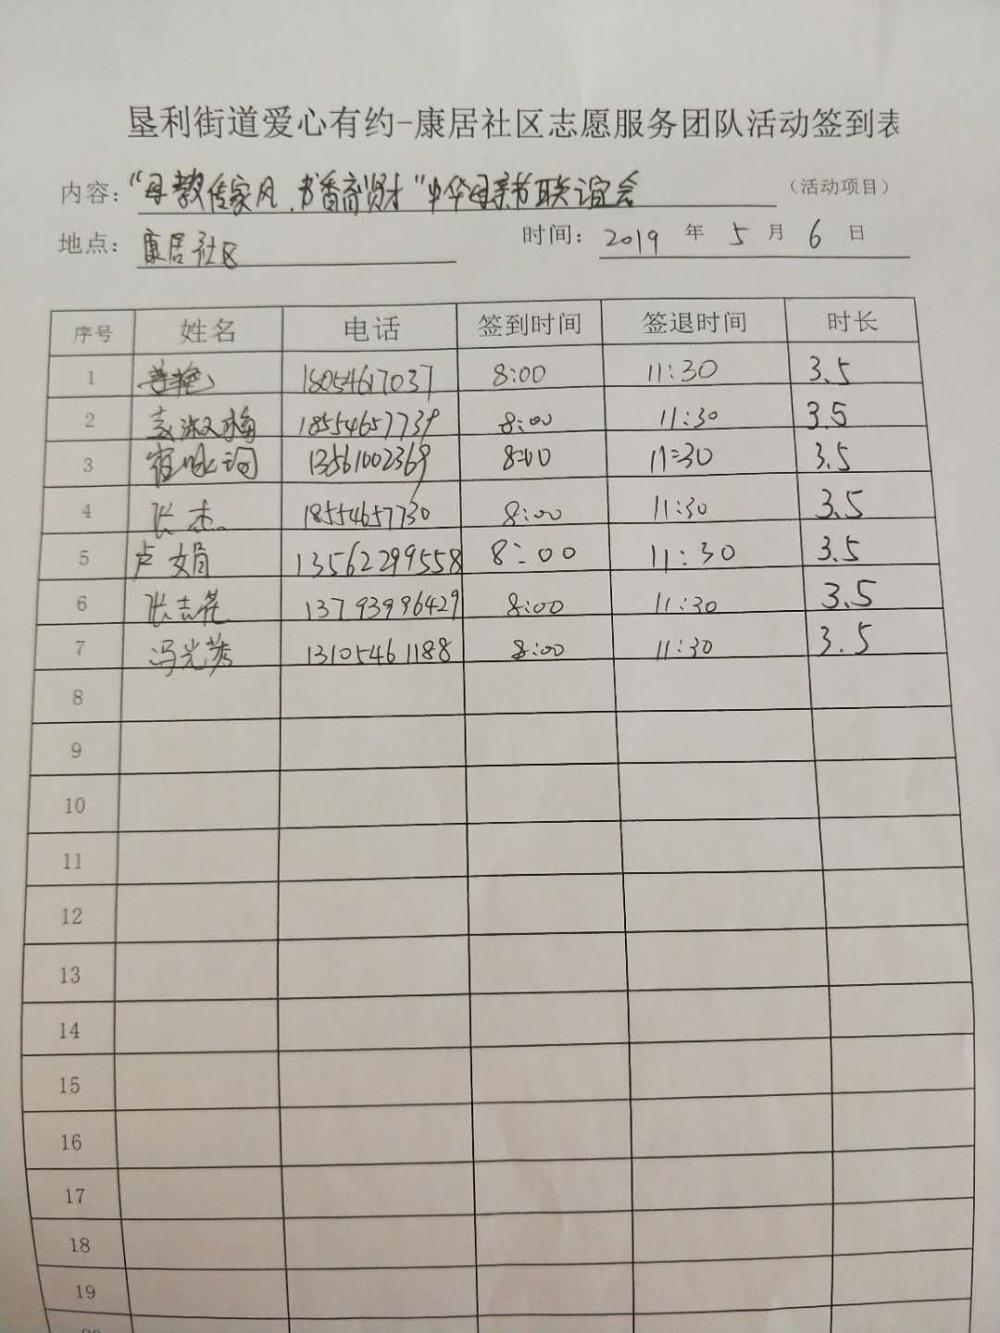 垦利街道爱心有约-康居社区志愿服务团队活动签到表
内容：“母教传家风、书香育贤才”中华母亲节联谊会 （活动项目）
地点：康居社区 时间：2019 年 5 月 6 日
序号 姓名 电话 签到时间 签退时间 时长
1 18054617037 8:00 11:30 3.5
2 18554657739 8:00 11:30 3.5
3 13561002369 8:00 11:30 3.5
4 张杰 18554657730 8:00 11:30 3.5
5 卢娟 13562299558 8:00 11:30 3.5
6 张志花 13793996429 8:00 11:30 3.5
7 冯光荣 13105461188 8:00 11:30 3.5
8
9
10
11
12
13
14
15
16
17
18
19